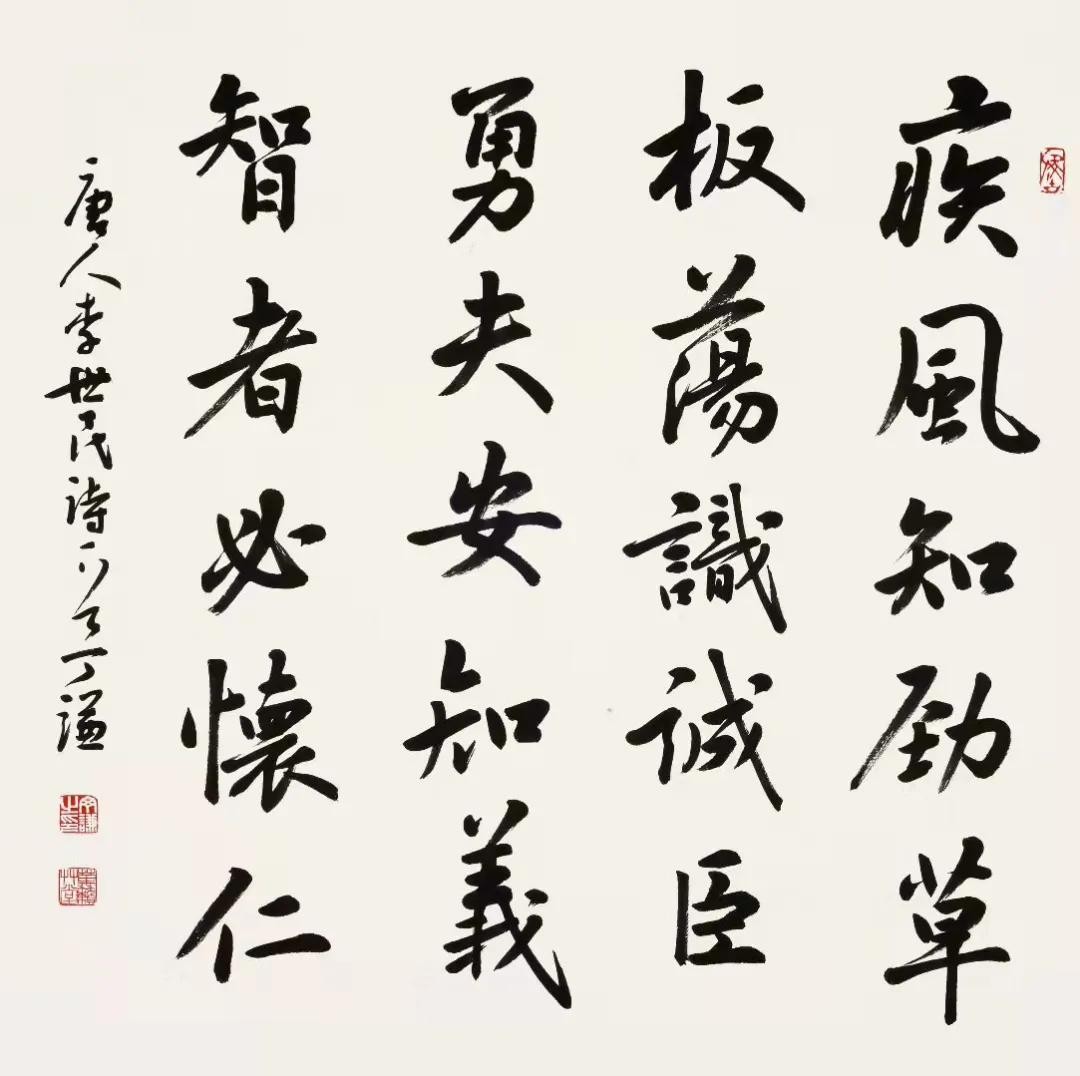 疾風知勁草
板蕩識誠臣
勇夫安知義
智者必懷仁
唐人李世民詩 謙